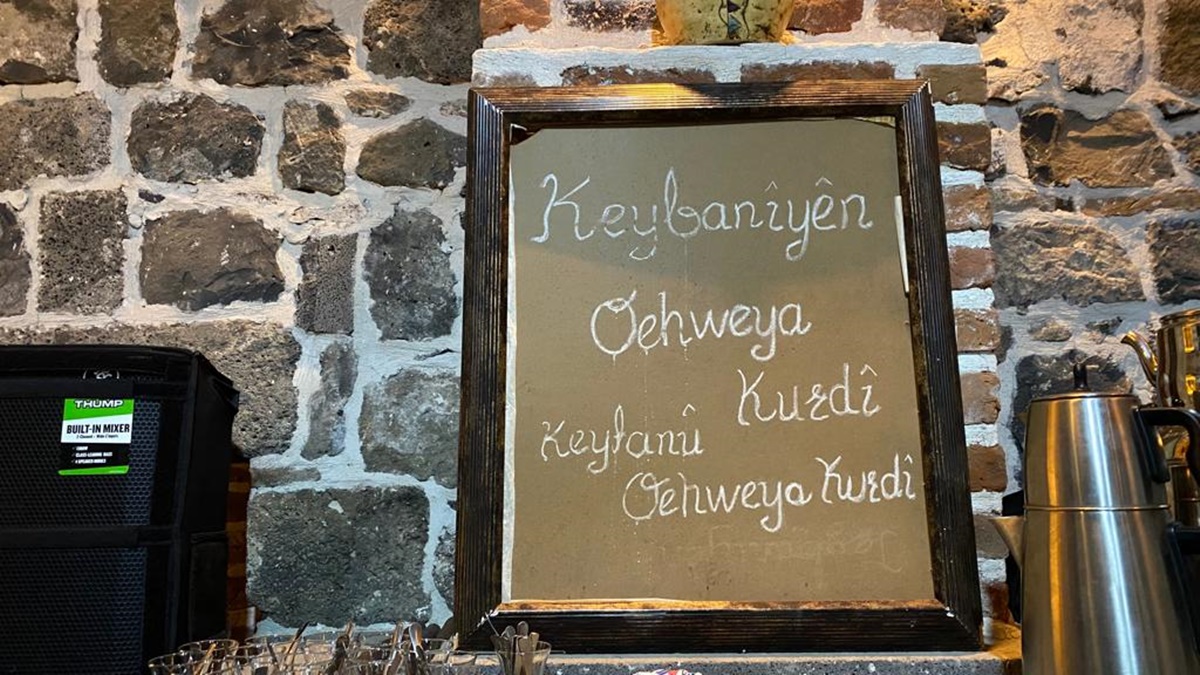 Keybanîyên
Qehweya
Kurdî
Keybanû
Qehweya Kurdî
THUMP
BUILT-IN MIXER